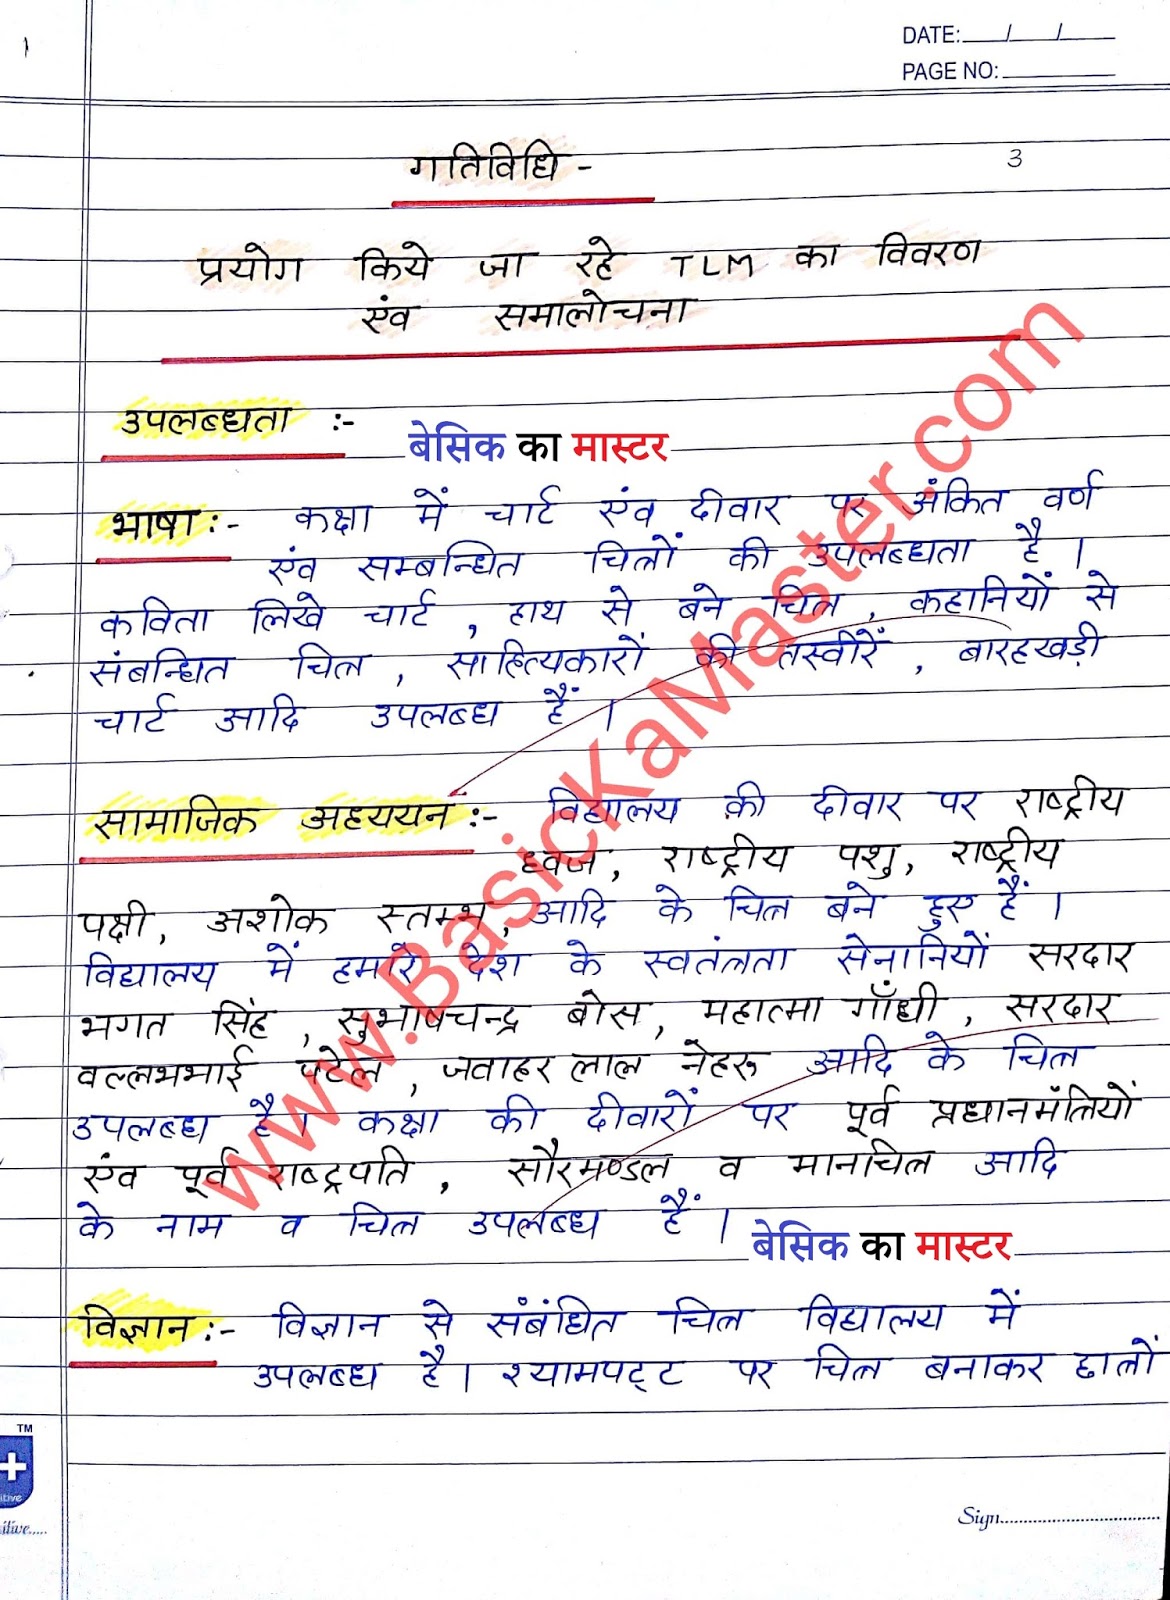 DATE:___/___/___
PAGE NO:________
गतिविधि - 3
प्रयोग किये जा रहे TLM का विवरण
एंव समालोचना
उपलब्धता :-
बेसिक का मास्टर
भाषा :- कक्षा में चार्ट एंव दीवार पर अंकित वर्ण
एंव सम्बन्धित चित्रों की उपलब्धता है ।
कविता लिखे चार्ट , हाथ से बने चित्र , कहानियों से
संबन्धित चित्र , साहित्यकारों की तस्वीरें , बारहखड़ी
चार्ट आदि उपलब्ध हैं ।
सामाजिक अध्ययन :- विद्यालय की दीवार पर राष्ट्रीय
ध्वज , राष्ट्रीय पशु, राष्ट्रीय
पक्षी, अशोक स्तम्भ, आदि के चित्र बने हुए हैं ।
विद्यालय में हमारे देश के स्वतंत्रता सेनानियों सरदार
भगत सिंह , सुभाषचन्द्र बोस, महात्मा गाँधी , सरदार
वल्लभभाई पटेल , जवाहर लाल नेहरू आदि के चित्र
उपलब्ध है । कक्षा की दीवारों पर पूर्व प्रधानमंत्रियों
एंव पूर्व राष्ट्रपति , सौरमण्डल व मानचित्र आदि
के नाम व चित्र उपलब्ध हैं ।
बेसिक का मास्टर
विज्ञान :- विज्ञान से संबंधित चित्र विद्यालय में
उपलब्ध है । श्यामपट्ट पर चित्र बनाकर छात्रों
www.BasicKaMaster.com
TM
itive
itive.....
Sign..............................